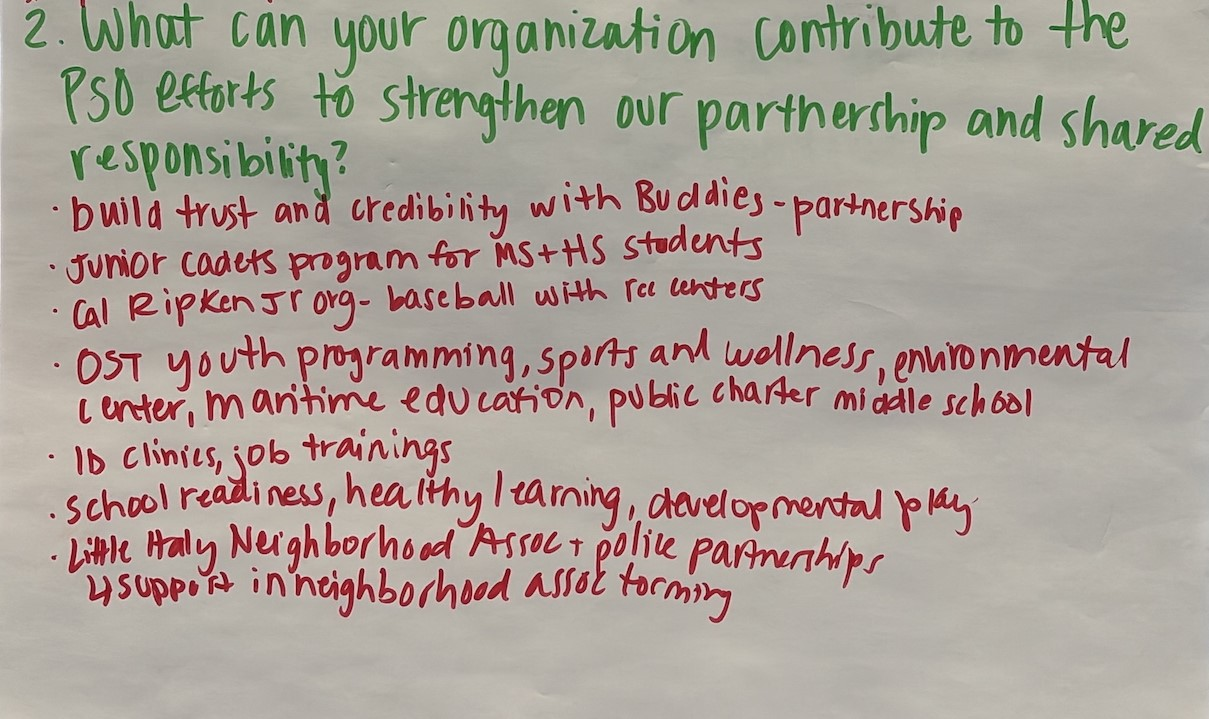 2. What can your organization contribute to the
PSO efforts to strengthen our partnership and shared
responsibility?
· build trust and credibility with Buddies - partnership
· Junior cadets program for MS + HS students
· Cal Ripken Jr org - baseball with rec centers
· OST youth programming, sports and wellness, environmental
center, maritime education, public charter middle school
· ID clinics, job trainings
· school readiness, healthy learning, developmental play
· Little Italy Neighborhood Assoc + police partnerships
↳ support in neighborhood assoc forming